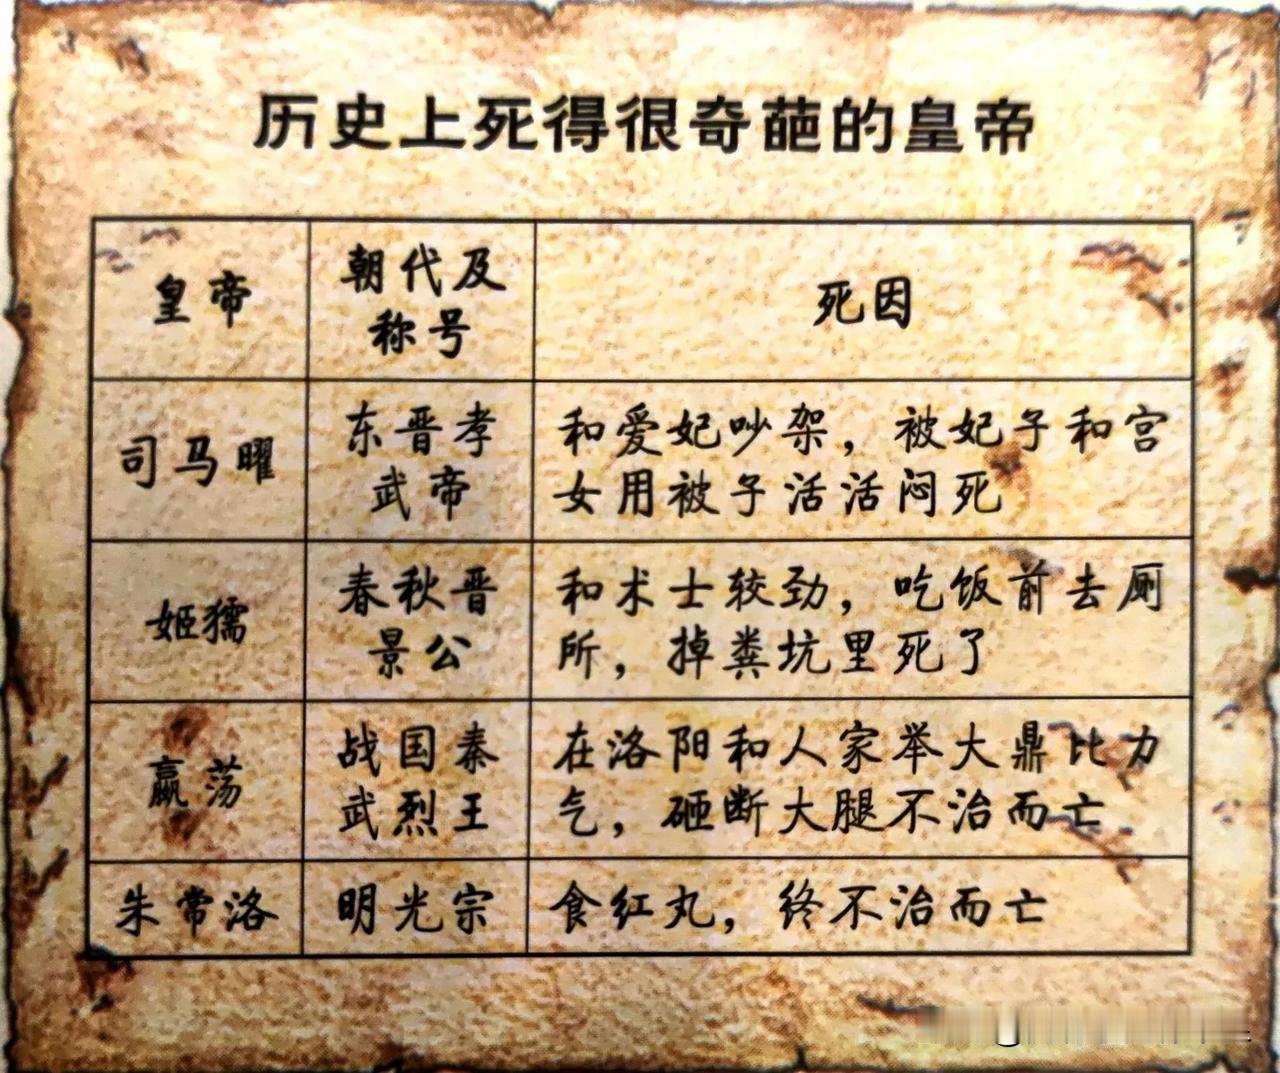 历史上死得很奇葩的皇帝
皇帝
朝代及
称号
死因
司马曜
东晋孝
武帝
和爱妃吵架，被妃子和宫
女用被子活活闷死
姬獳
春秋晋
景公
和术士较劲，吃饭前去厕
所，掉粪坑里死了
嬴荡
战国秦
武烈王
在洛阳和人家举大鼎比力
气，砸断大腿不治而亡
朱常洛
明光宗
食红丸，终不治而亡